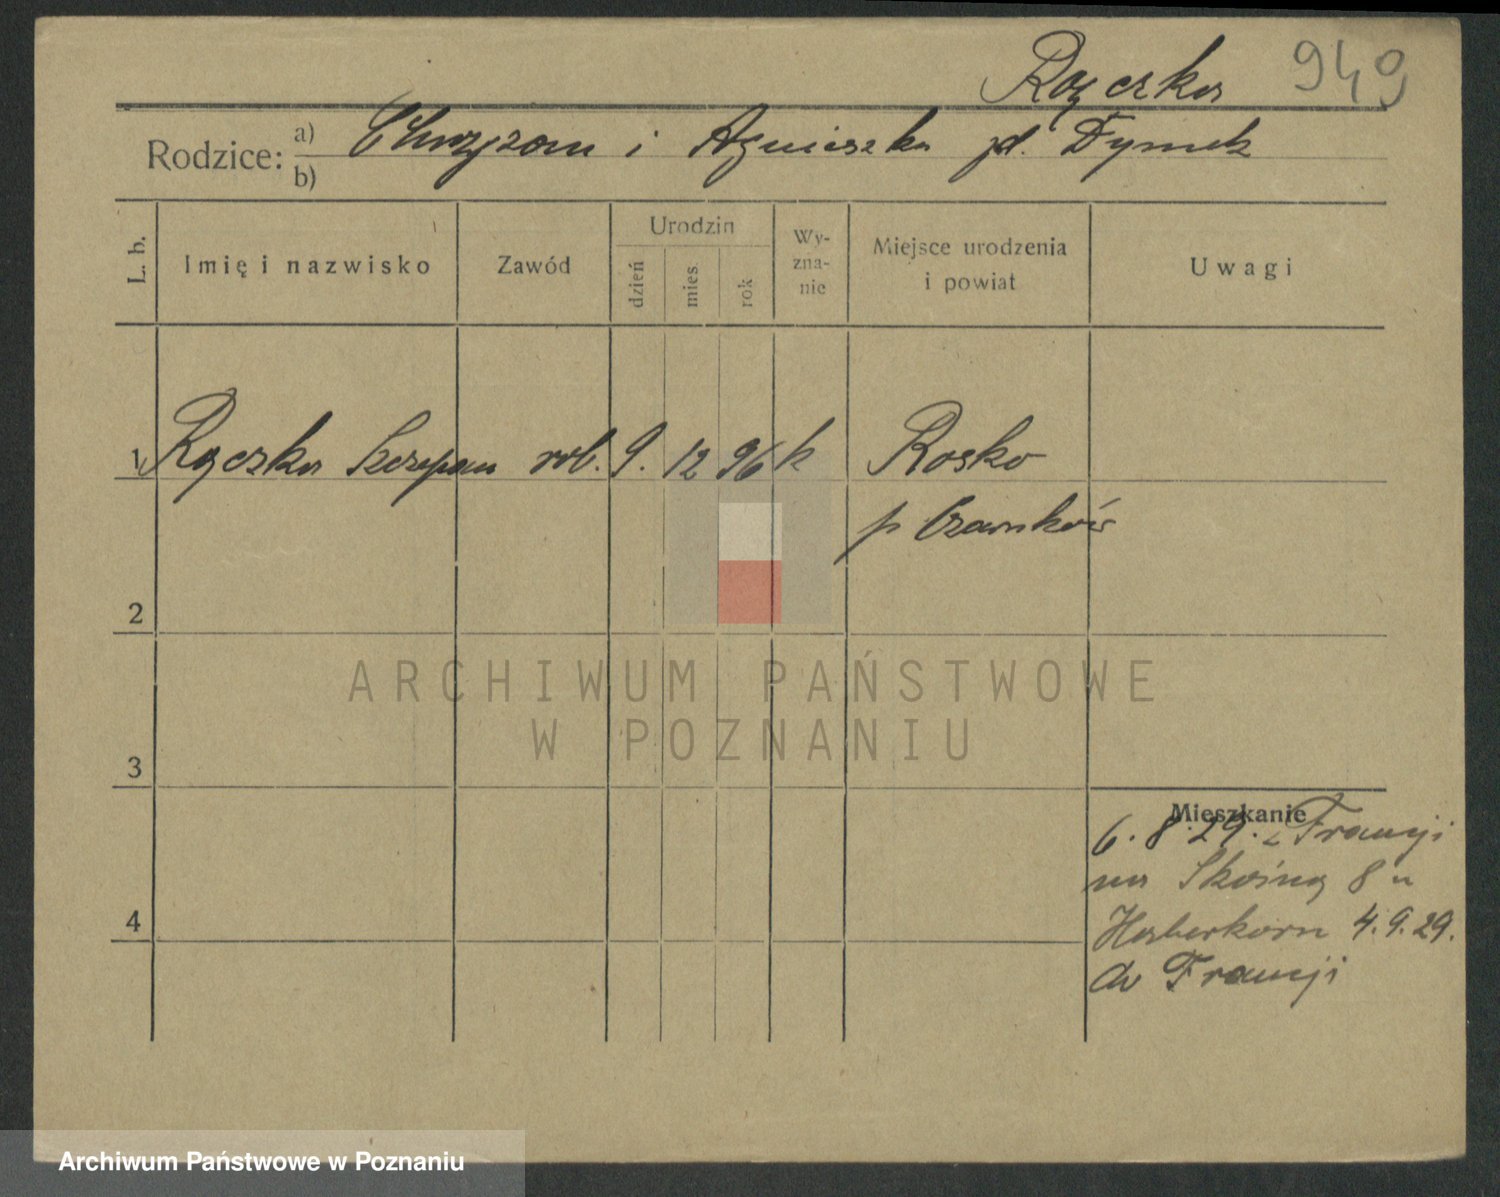 Rączka 949
Rodzice: a) Chryzan i Agnieszka zd. Dymek
b)
L. b. Imię i nazwisko Zawód Urodzin dzień mies. rok Wyznanie Miejsce urodzenia i powiat Uwagi
1 Rączka Szczepan rob. 9. 12 96 k Rosko
p Czarnków
2
ARCHIWUM PAŃSTWOWE
W POZNANIU
3
Mieszkanie
6. 8. 29. z Francji
na 8 u
Haberkorn 4.9.29.
4
do Francji
Archiwum Państwowe w Poznaniu